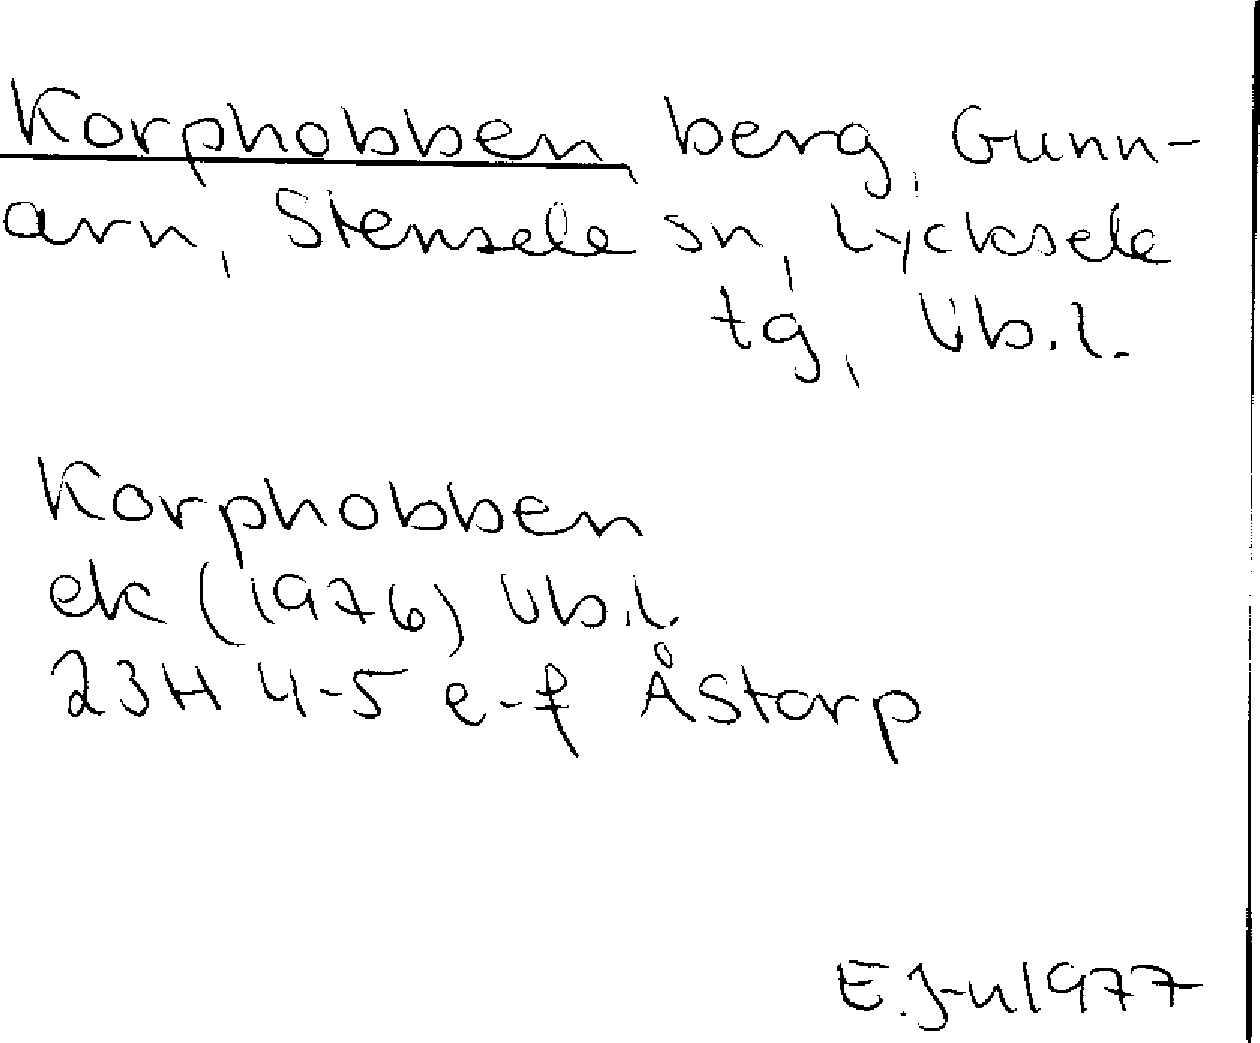 Korphobben berg, Gunn-
arn, Stensele sn, Lycksele
tg, Vb.l.
Korphobben
ek (1976) Vb.l.
23H 4-5 e-f Åstorp
E.J-n 1977